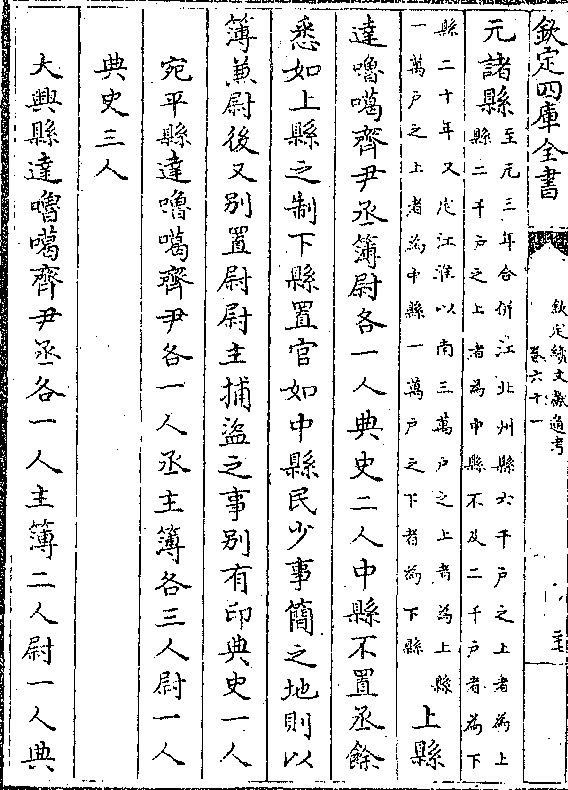 欽定四庫全書
欽定續文獻通考
卷六十一
元諸縣
至元三年合併江北州縣六千戶之上者為上
縣二千戶之上者為中縣不及二千戶者為下
縣二十年又定江淮以南三萬戶之上者為上縣
一萬戶之上者為中縣一萬戶之下者為下縣
上縣
達嚕噶齊尹丞簿尉各一人典史二人中縣不置丞餘
悉如上縣之制下縣置官如中縣民少事簡之地則以
簿兼尉後又别置尉尉主捕盜之事别有印典史一人
宛平縣達嚕噶齊尹各一人丞主簿各三人尉一人
典史三人
大興縣達嚕噶齊尹丞各一人主簿二人尉一人典